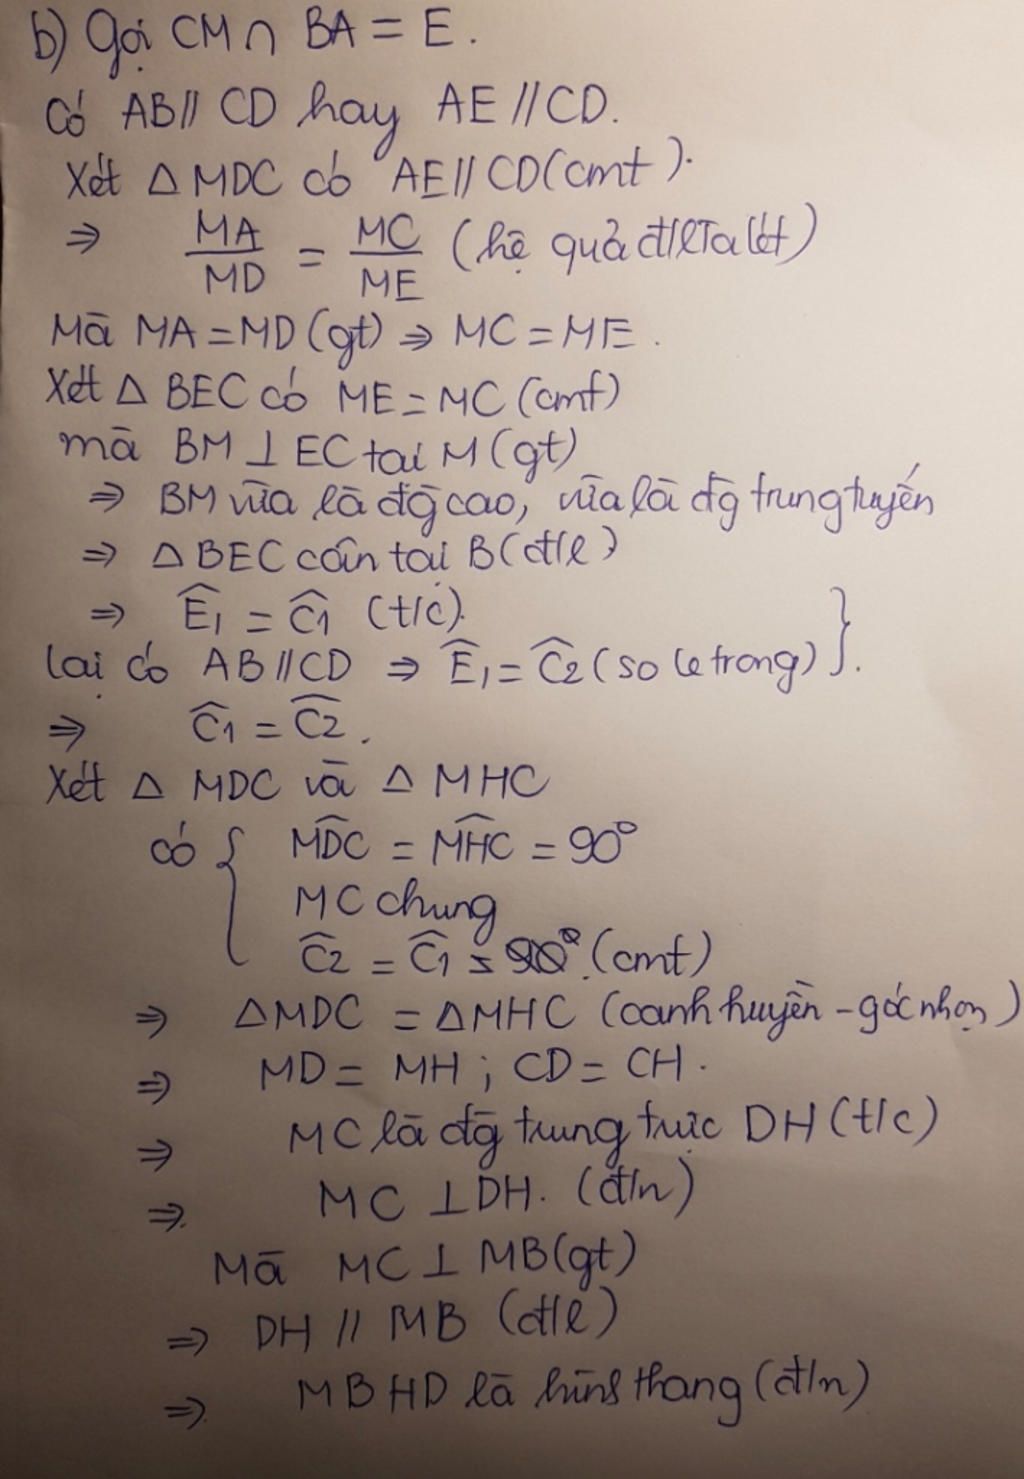 b) Gọi CM ∩ BA = E.
Có AB // CD hay AE // CD.
Xét Δ MDC có AE // CD (cmt).
⇒ MA/MD = MC/ME (hệ quả đ/l Ta lét)
Mà MA = MD (gt) ⇒ MC = ME.
Xét Δ BEC có ME = MC (cmt)
mà BM ⊥ EC tại M (gt)
⇒ BM vừa là đg̀ cao, vừa là đg̀ trung tuyến
⇒ Δ BEC cân tại B (đ/l)
⇒ Ê1 = Ĉ1 (t/c).
lại có AB // CD ⇒ Ê1 = Ĉ2 (so le trong) }.
⇒ Ĉ1 = Ĉ2.
Xét Δ MDC và Δ MHC
có { MD̂C = MĤC = 90°
MC chung
Ĉ2 = Ĉ1 (cmt)
⇒ ΔMDC = ΔMHC (cạnh huyền - góc nhọn)
⇒ MD = MH ; CD = CH.
⇒ MC là đg̀ trung trực DH (t/c)
⇒ MC ⊥ DH. (đ/n)
Mà MC ⊥ MB (gt)
⇒ DH // MB (đ/l)
⇒ MBHD là hình thang (đ/n)